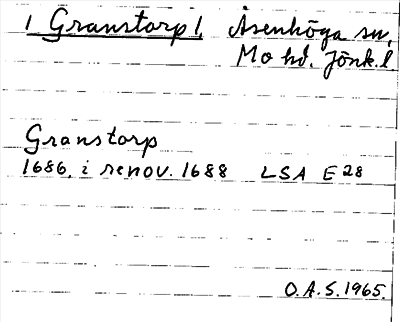 1 Granstorp 1. Åsenhöga sn,
Mo hd. Jönk. l.
Granstorp
1686, i renov. 1688 LSA E 28
O.A.S. 1965.